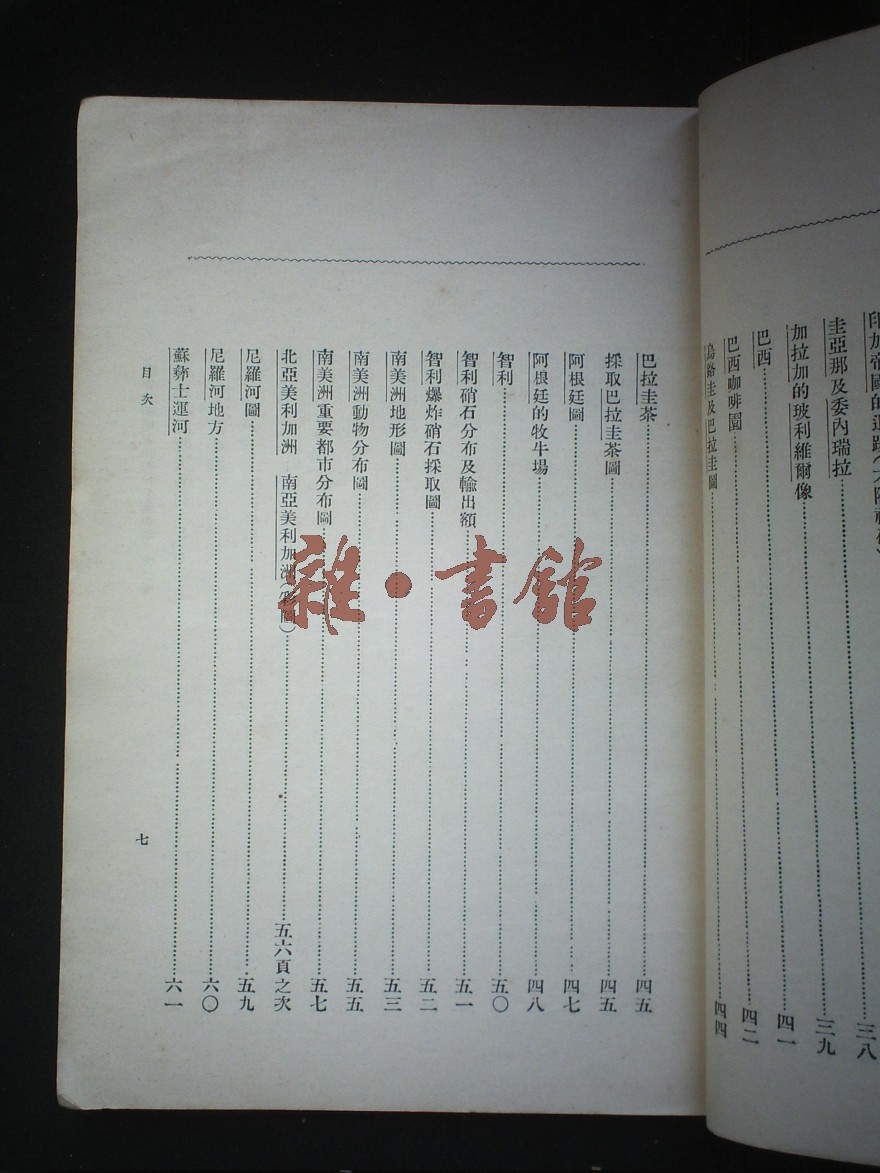 圭亞那及委內瑞拉 三九
加拉加的玻利維爾像
巴西 四一
巴西咖啡園 四二
烏路圭及巴拉圭圖 四四
巴拉圭茶 四五
採取巴拉圭茶圖 四五
阿根廷圖 四七
阿根廷的牧牛場 四八
智利 五〇
智利硝石分布及輸出額 五一
智利爆炸硝石採取圖 五二
南美洲地形圖 五三
南美洲動物分布圖 五五
南美洲重要都市分布圖 五七
北亞美利加洲 南亞美利加洲(彩圖) 五六頁之次
尼羅河圖 五九
尼羅河地方 六〇
蘇彝士運河 六一
目次
七
雜·書館